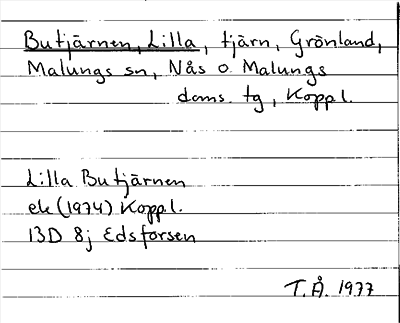 Butjärnen, Lilla, tjärn, Grönland,
Malungs sn, Nås o. Malungs
doms. tg, Koppl.
Lilla Butjärnen
ek (1974) Koppl.
13D 8j Edsforsen
T.Å. 1977